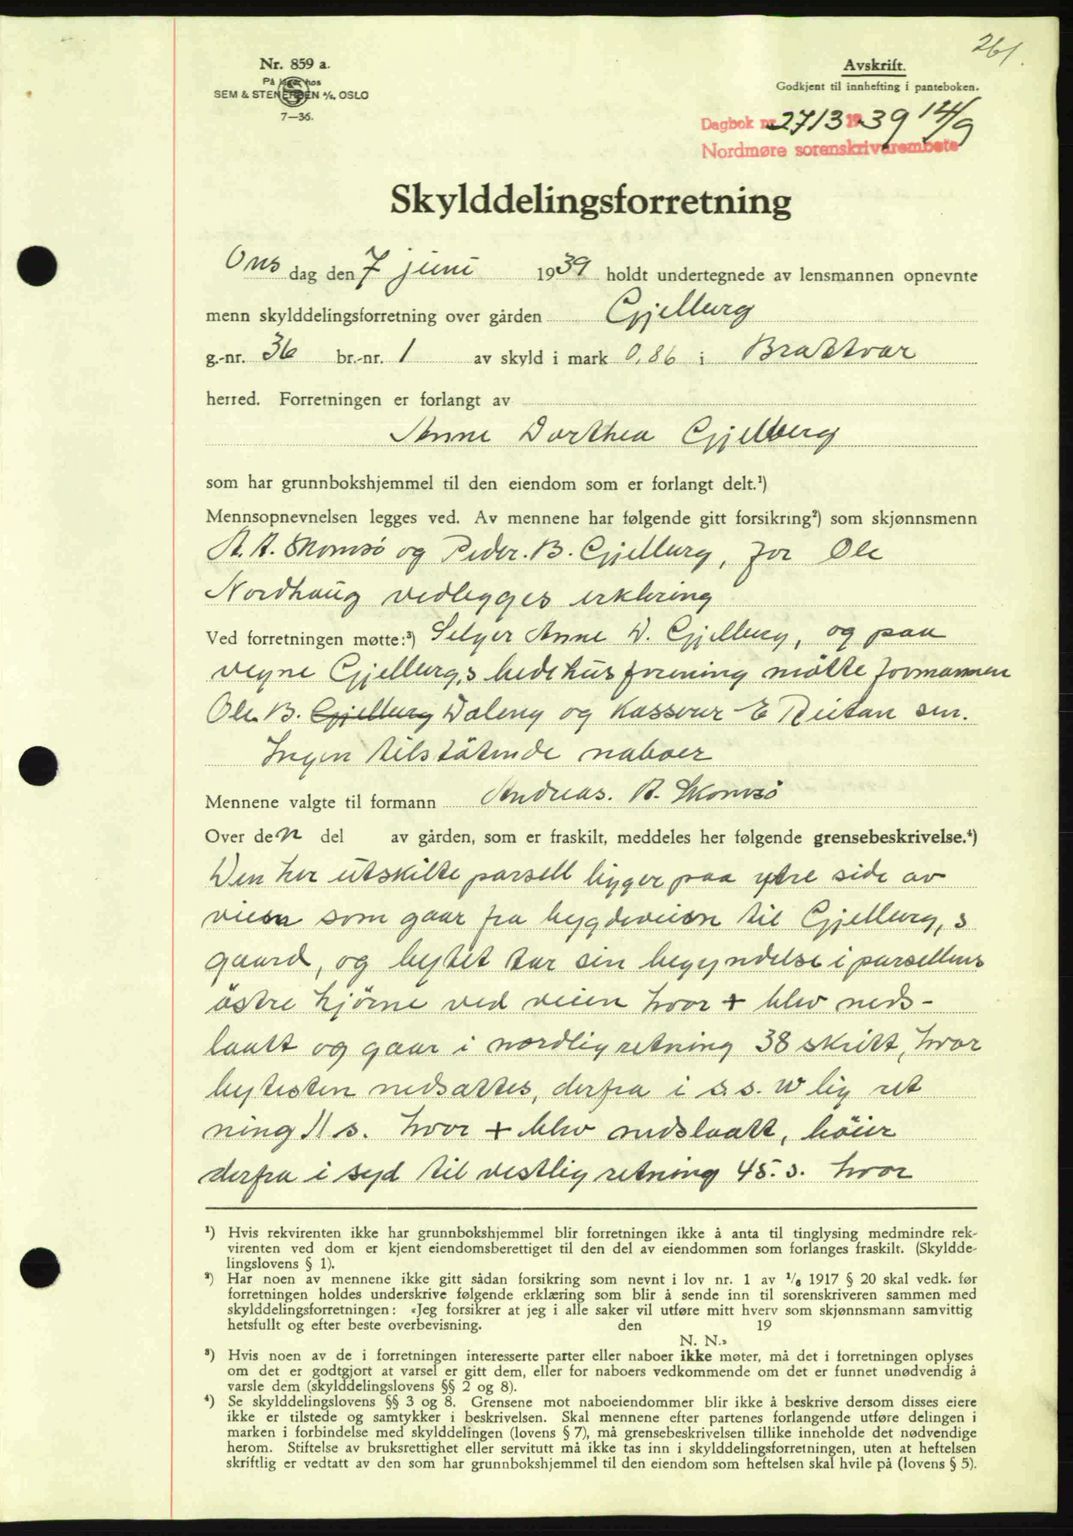 261.
Nr. 859 a.
På lager hos
SEM & STENERSEN A/S, OSLO
7—36.
Avskrift.
Godkjent til innhefting i panteboken.
Dagbok nr. 2713 1939 14/9
Nordmøre sorenskrivarembete
Skylddelingsforretning
Ons dag den 7 juni 1939 holdt undertegnede av lensmannen opnevnte
menn skylddelingsforretning over gården Gjelberg
g.-nr. 36 br.-nr. 1 av skyld i mark 0,86 i Brattvær
herred. Forretningen er forlangt av
Anne Dorthea Gjelberg
som har grunnbokshjemmel til den eiendom som er forlangt delt.¹)
Mennsopnevnelsen legges ved. Av mennene har følgende gitt forsikring²) som skjønnsmenn
A. A. Skomsö og Peder. B. Gjelberg, for Ole
Nordhaug vedlegges erklæring
Ved forretningen møtte:³) Selger Anne D. Gjelberg, og paa
vegne Gjelberg,s bedehusforening mötte formannen
Ole B. Gjelberg Daleng og Kasserer E Reitan sen.
Ingen tilstötende naboer
Mennene valgte til formann Andreas. A. Skomsö
Over den del av gården, som er fraskilt, meddeles her følgende grensebeskrivelse.⁴)
Den her utskilte parsell ligger paa ytre side av
veien som gaar fra bygdeveien til Gjelberg,s
gaard, og bytet tar sin begyndelse i parsellens
östre hjörne ved veien hvor + blev neds-
laatt og gaar i nordlig retning 38 skritt, hvor
bytesten nedsattes, derfra i s.s. W lig ret
ning 11 s. hvor + blev nedslaatt, böier
derfra i syd til vestlig retning 45. s. hvor
¹) Hvis rekvirenten ikke har grunnbokshjemmel blir forretningen ikke å anta til tinglysing medmindre rek-
virenten ved dom er kjent eiendomsberettiget til den del av eiendommen som forlanges fraskilt. (Skyldde-
lingslovens § 1).
²) Har noen av mennene ikke gitt sådan forsikring som nevnt i lov nr. 1 av 1/6 1917 § 20 skal vedk. før
forretningen holdes underskrive følgende erklæring som blir å sende inn til sorenskriveren sammen med
skylddelingsforretningen: «Jeg forsikrer at jeg i alle saker vil utføre mitt hverv som skjønnsmann samvittig
hetsfullt og efter beste overbevisning. den 19
N. N.»
³) Hvis noen av de i forretningen interesserte parter eller naboer ikke møter, må det i forretningen oplyses
om det er godtgjort at varsel er gitt dem, eller for naboers vedkommende om det er funnet unødvendig å
varsle dem (skylddelingslovens §§ 2 og 8).
⁴) Se skylddelingslovens §§ 3 og 8. Grensene mot naboeiendommer blir ikke å beskrive dersom disses eiere
ikke er tilstede og samtykker i beskrivelsen. Skal mennene efter partenes forlangende utføre delingen i
marken i forbindelse med skylddelingen (lovens § 7), må grensebeskrivelsen tillike inneholde det nødvendige
herom. Stiftelse av bruksrettighet eller servitutt må ikke tas inn i skylddelingsforretningen, uten at heftelsen
skriftlig er vedtatt av den som har grunnbokshjemmel til den eiendom som heftelsen skal hvile på (lovens § 5).